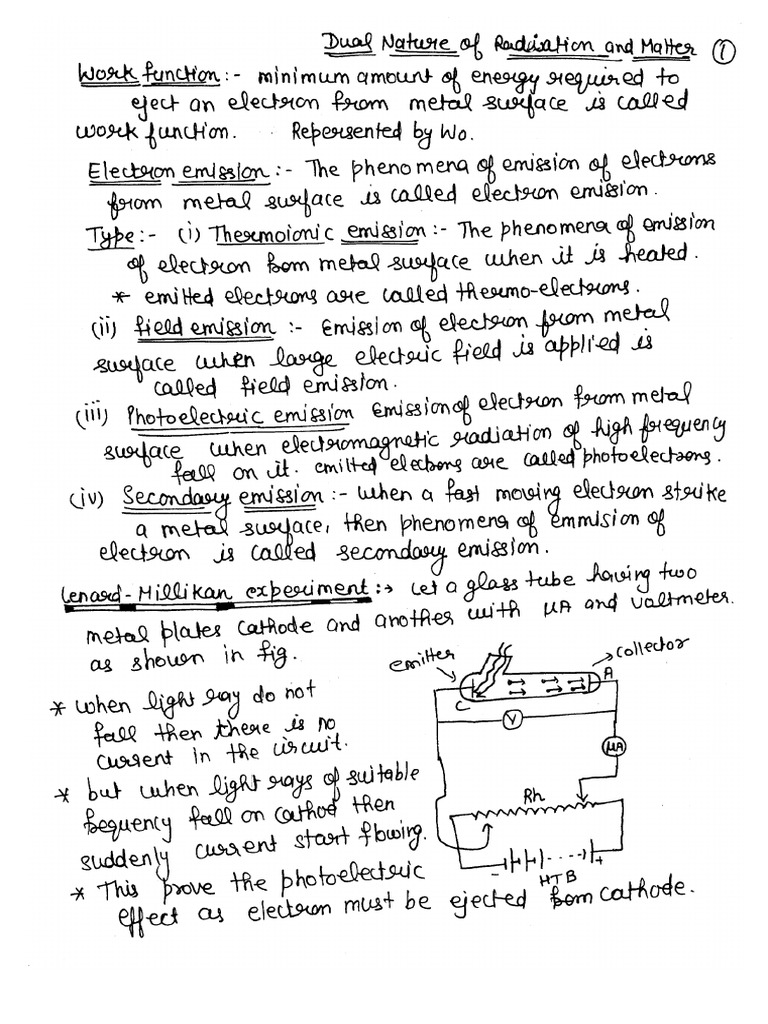 Dual Nature of Radiation and Matter 1
Work function:- minimum amount of energy required to
eject an electron from metal surface is called
work function. Repersented by Wo.
Electron emission:- The phenomena of emission of electrons
from metal surface is called electron emission.
Type:- (i) Thermoionic emission:- The phenomena of emission
of electron from metal surface when it is heated.
* emitted electrons are called thermo-electrons.
(ii) field emission :- Emission of electron from metal
surface when large electric field is applied is
called field emission.
(iii) Photoelectric emission Emission of electron from metal
surface when electromagnetic radiation of high frequency
fall on it. emitted electrons are called photoelectrons.
(iv) Secondary emission:- when a fast moving electron strike
a metal surface, then phenomena of emmision of
electron is called secondary emission.
Lenard-Millikan experiment:→ Let a glass tube having two
metal plates cathode and another with μA and voltmeter.
as shown in fig.
emitter
collector
A
C
V
μA
Rh
- +
HTB
* when light ray do not
fall then there is no
current in the circuit.
* but when light rays of suitable
frequency fall on cathod then
suddenly current start flowing.
* This prove the photoelectric
effect as electron must be ejected from cathode.